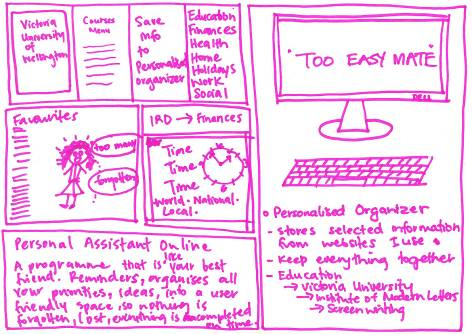 Victoria
University
of
Wellington
Courses
Menu
Save
info
to
Personalised
organizer
Education
Finances
Health
Home
Holidays
Work
Social
Favourites
too many
forgotten
IRD → Finances
Time
Time
Time
World. National.
Local.
Personal Assistant Online
A programme that is like your best
friend. Reminders, organises all
your priorities, ideas, into a user
friendly space, so nothing is
forgotten, lost, everything is accomplished
on time.
"TOO EASY MATE"
DELL
• Personalised Organizer
- stores selected information
from websites I use •
- Keep everything together
- Education
→ Victoria University
→ Institute of Modern Letters
→ Screenwriting